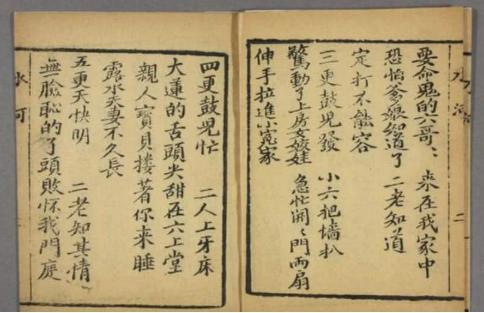 要命鬼的六哥〻　來在我家中
恐怕爹娘知道了　二老知道
定打不能容
三更鼓兒發　小六把墻扒
驚動了上房女姣娃　急忙開〻門兩扇
伸手拉進小冤家
二
四更鼓兒忙　二人上牙床
大蓮的舌頭尖甜在六上堂
親人寶貝摟著你來睡
露水夫妻不久長
五更天快明　二老知其情
無臉恥的了頭敗怀我門庭